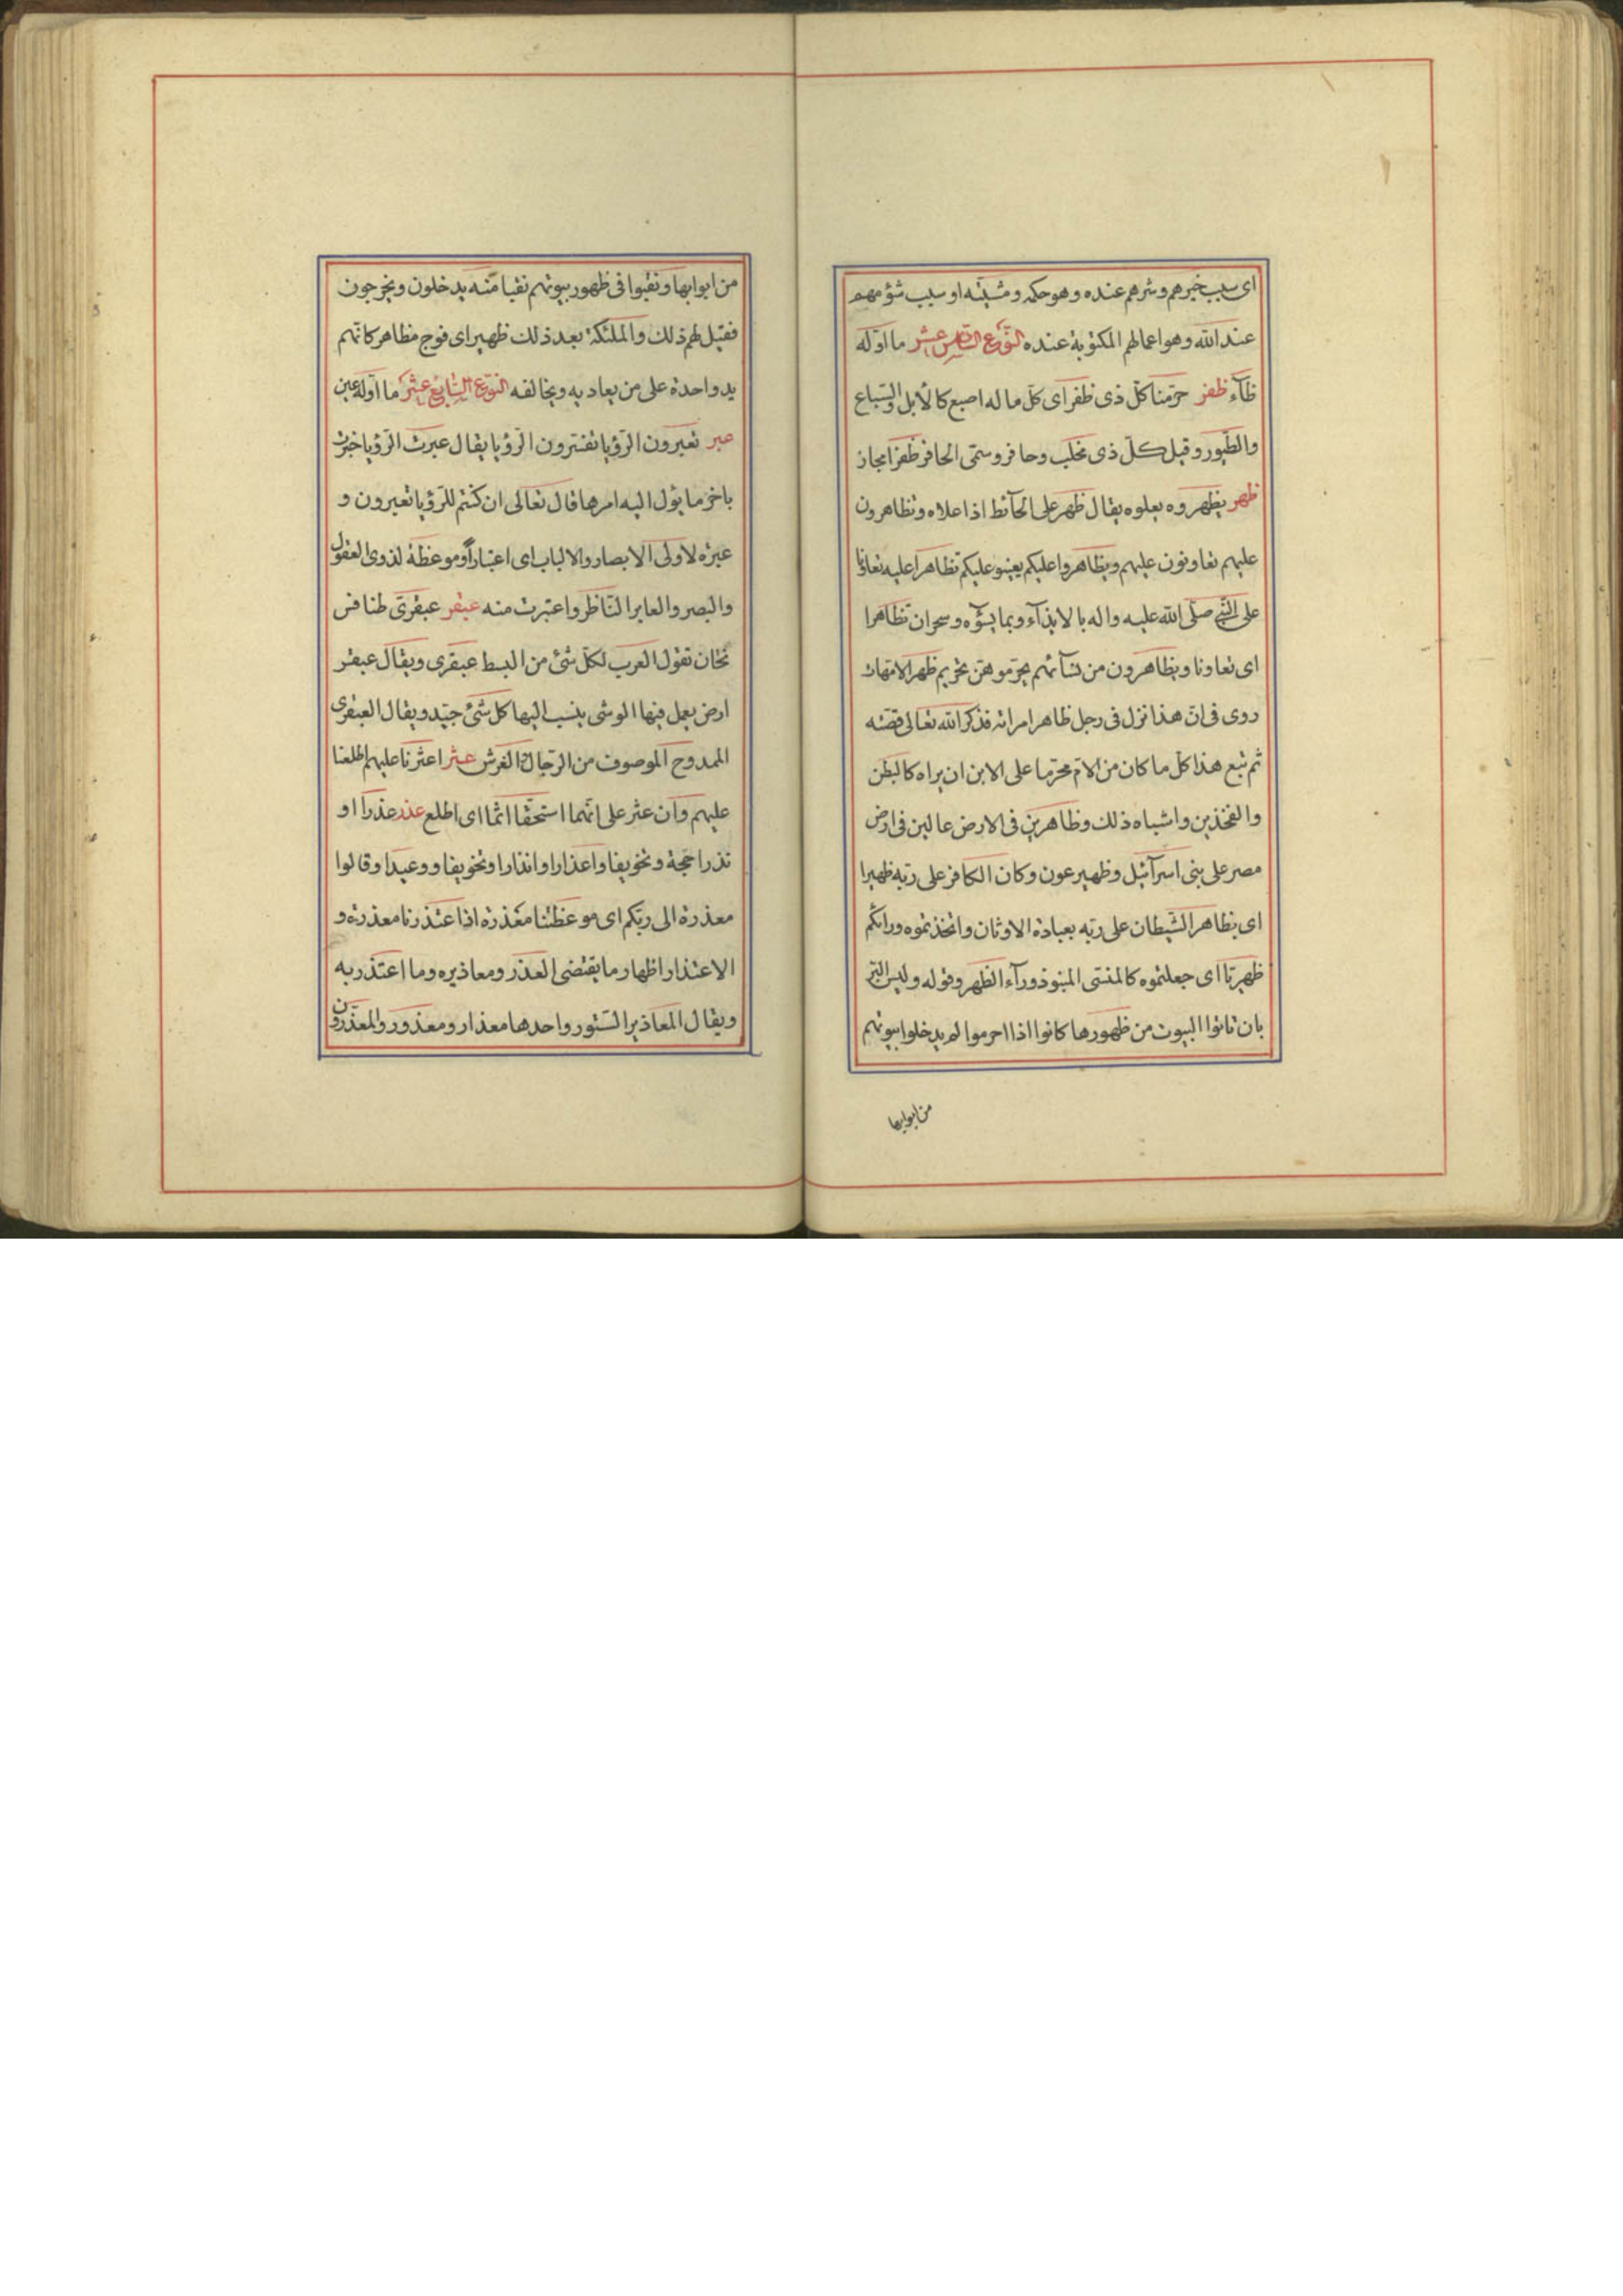 اى سبب خيرهم وشرهم عنده وهو حكمه ومشيّته او سبب شؤمهم
عند الله وهو اعمالهم المكتوبة عنده النّوع السّادس عشر ما اوّله
ظآء ظفر حرّمنا كلّ ذى ظفر اى كلّ ما له اصبع كالأبل والسّباع
والطّيور وقيل كلّ ذى مخلب وحافر وسمّى الحافر ظفرا مجاز
ظهر يظهروه يعلوه يقال ظهر على الحآئط اذا علاه وتظاهرون
عليهم تعاونون عليهم ويظاهروا عليكم يعينو عليكم تظاهرا عليه تعاونا
على النّبى صلّى الله عليه واله بالايذآء وبما يسوؤه وسحران تظاهرا
اى تعاونا ويظاهرون من نسآئهم يحرّموهنّ تحريم ظهر الامّهات
روى فى انّ هذا نزل فى رجل ظاهر امراته فذكر الله تعالى قصّته
ثم تبع هذا كل ما كان من الامّ محرّما على الابن ان يراه كالبطن
والفخذين واشباه ذلك وظاهرين فى الارض عالين فى ارض
مصر على بنى اسرآئيل وظهير عون وكان الكافر على ربّه ظهيرا
اى يظاهر الشّيطان على ربّه بعبادة الاوثان واتّخذتموه ورائكم
ظهريّا اى جعلتموه كالمنسّى المنبوذ ورآء الظهر وقوله وليس البرّ
بان تاتوا البيوت من ظهورها كانوا اذا احرموا لم يدخلوا بيوتهم
من ابوابها
من ابوابها ونقبوا فى ظهور بيوتهم نقبا منه يدخلون ويخرجون
فقيل لهم ذلك والملئكة بعد ذلك ظهير اى فوج مظاهر كانّهم
يد واحدة على من يعاديه ويخالفه النّوع السّابع عشر ما اوّله عين
عبر تعبرون الرّؤيا تفسّرون الرّؤيا يقال عبرت الرّؤيا خبرت
باخر ما يؤل اليه امرها قال تعالى ان كنتم للرّؤيا تعبرون و
عبرة لاولى الابصار والالباب اى اعتبارا وموعظة لذوى العقول
والبصر والعابر النّاظر واعتبرت منه عبقر عبقرىّ طنافس
ثخان تقول العرب لكلّ شئ من البسط عبقرى ويقال عبقر
ارض يعمل فيها الوشى ينسب اليها كل شئ جيّد ويقال العبقرى
الممدوح الموصوف من الرّجال والفرش عثر اعثرنا عليهم اطلعنا
عليهم وان عثر على انّهما استحقّا اثما اى اطلع عذر عذرا او
نذرا حجّة وتخويفا واعذارا وانذارا وتخويفا ووعيدا وقالوا
معذرة الى ربّكم اى موعظتنا معذرة اذا اعتذرنا معذرة و
الاعتذار اظهار ما يقتضى العذر ومعاذيره وما اعتذر به
ويقال المعاذير السّتور واحدها معذار ومعذور والمعذّرون